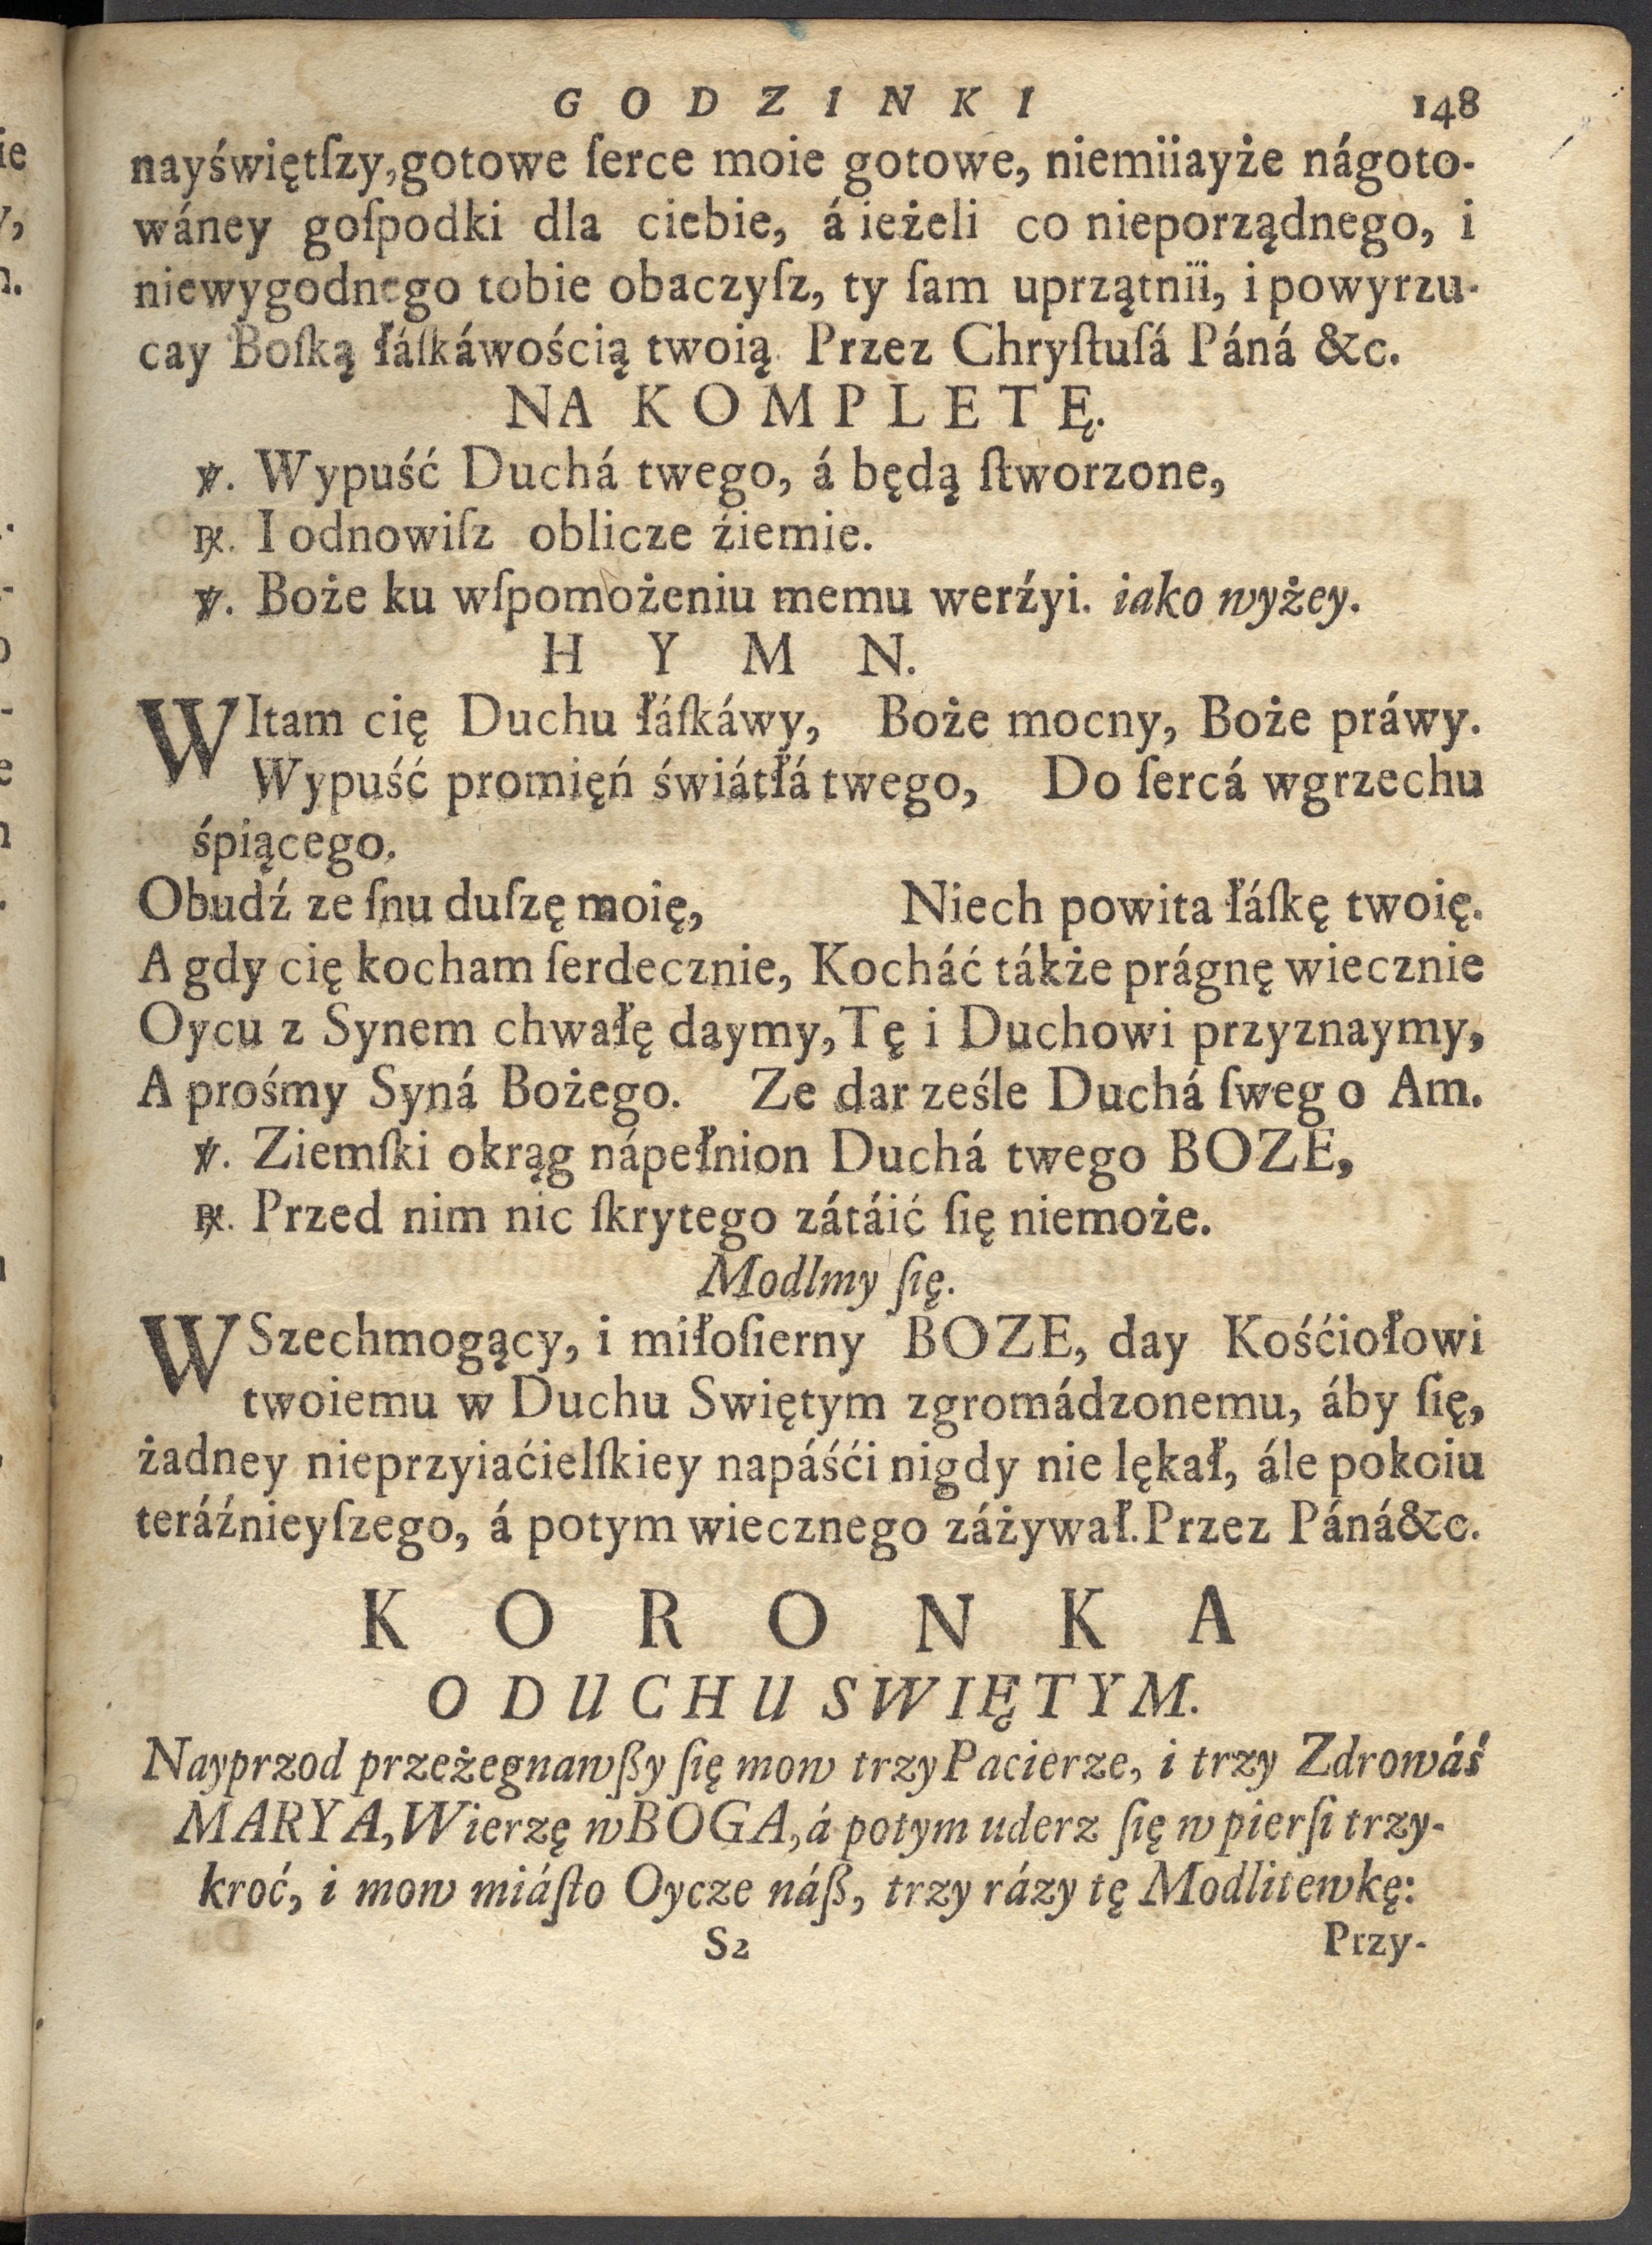 GODZINKI 148
nayświętſzy, gotowe ſerce moie gotowe, niemiiayże nágoto-
wáney goſpodki dla ciebie, á ieżeli co nieporządnego, i
niewygodnego tobie obaczyſz, ty ſam uprzątnïi, i powyrzu-
cay Boſką łáſkáwością twoią. Przez Chryſtuſá Páná &c.
NA KOMPLETĘ.
℣. Wypuść Duchá twego, á będą ſtworzone,
℞. I odnowiſz oblicze źiemie.
℣. Boże ku wſpomożeniu memu werźyi. iako wyżey.
HYMN.
WItam cię Duchu łáſkáwy, Boże mocny, Boże práwy.
Wypuść promięń świátłá twego, Do ſercá wgrzechu
śpiącego.
Obudź ze ſnu duſzę moię, Niech powita łáſkę twoię.
A gdy cię kocham ſerdecznie, Kocháć tákże prágnę wiecznie
Oycu z Synem chwałę daymy, Tę i Duchowi przyznaymy,
A prośmy Syná Bożego. Ze dar ześle Duchá ſweg o Am.
℣. Ziemſki okrąg nápełnion Duchá twego BOZE,
℞. Przed nim nic ſkrytego zátáić ſię niemoże.
Modlmy ſię.
WSzechmogący, i miłoſierny BOZE, day Kośćiołowi
twoiemu w Duchu Swiętym zgromádzonemu, áby ſię,
żadney nieprzyiaćielſkiey napáśći nigdy nie lękał, ále pokoiu
teráźnieyſzego, á potym wiecznego záżywał. Przez Páná &c.
KORONKA
O DUCHU SWIĘTYM.
Nayprzod przeżegnawßy ſię mow trzy Pacierze, i trzy Zdrowáś
MARYA, Wierzę w BOGA, á potym uderz ſię w pierſi trzy-
kroć, i mow miáſto Oycze náß, trzy rázy tę Modlitewkę:
S2 Przy-